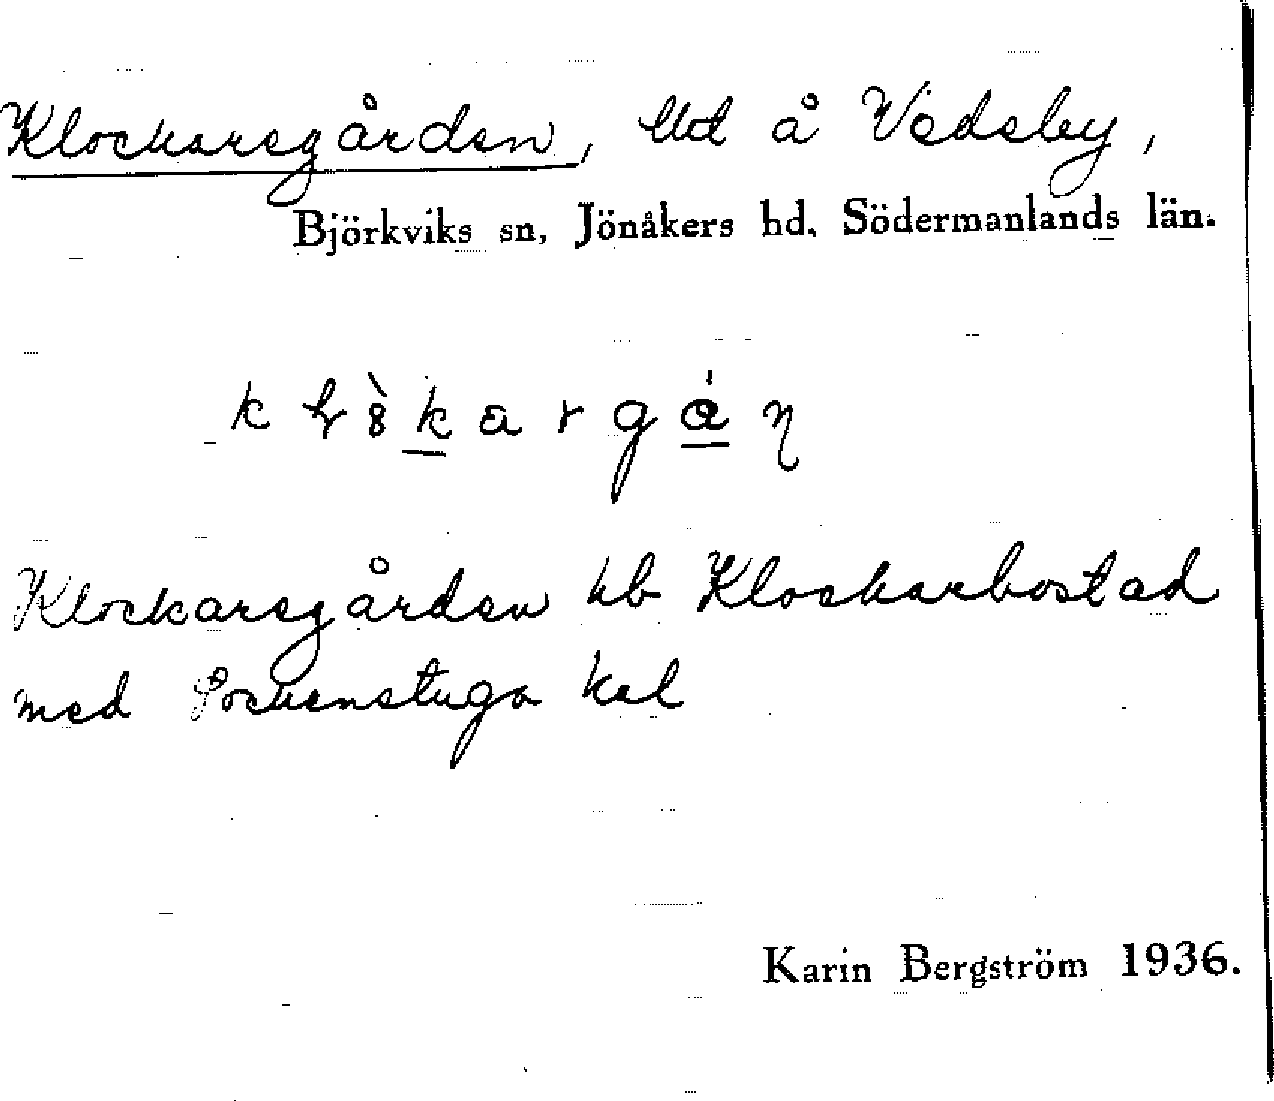 Klockarsgården, Ud å Vädsby,
Björkviks sn, Jönåkers hd. Södermanlands län.
Klockarsgården hb Klockarbostad
med Sockenstuga kal
Karin Bergström 1936.